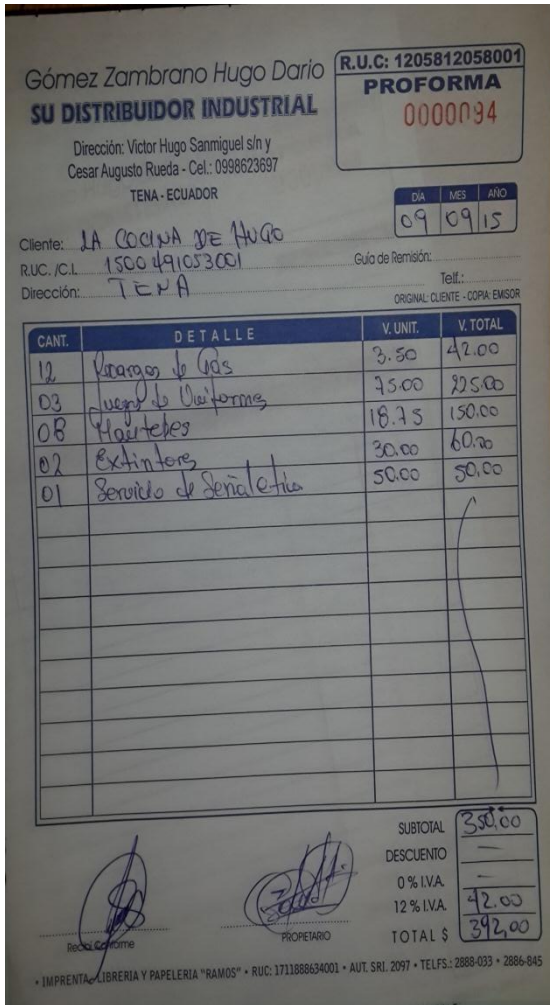 Gómez Zambrano Hugo Dario
SU DISTRIBUIDOR INDUSTRIAL
Dirección: Victor Hugo Sanmiguel s/n y
Cesar Augusto Rueda - Cel.: 0998623697
TENA - ECUADOR
R.U.C: 1205812058001
PROFORMA
0000094
DÍA MES AÑO
09 09 15
Cliente: LA COCINA DE HUGO
R.U.C. /C.I. 1500491053001 Guía de Remisión:
Dirección: TENA Telf.:
ORIGINAL: CLIENTE - COPIA: EMISOR
CANT. DETALLE V. UNIT. V. TOTAL
12 Recargas de Gas 3.50 42.00
03 Juego de Uniformes 75.00 225.00
08 Manteles 18.75 150.00
02 Extintores 30.00 60.00
01 Servicio de Señaletica 50.00 50.00
SUBTOTAL 350,00
DESCUENTO —
0 % I.V.A. -
12 % I.V.A. 42.00
TOTAL $ 392,00
Recibí Conforme PROPIETARIO
• IMPRENTA, LIBRERIA Y PAPELERIA "RAMOS" • RUC: 1711888634001 • AUT. SRI. 2097 • TELFS.: 2888-033 • 2886-845